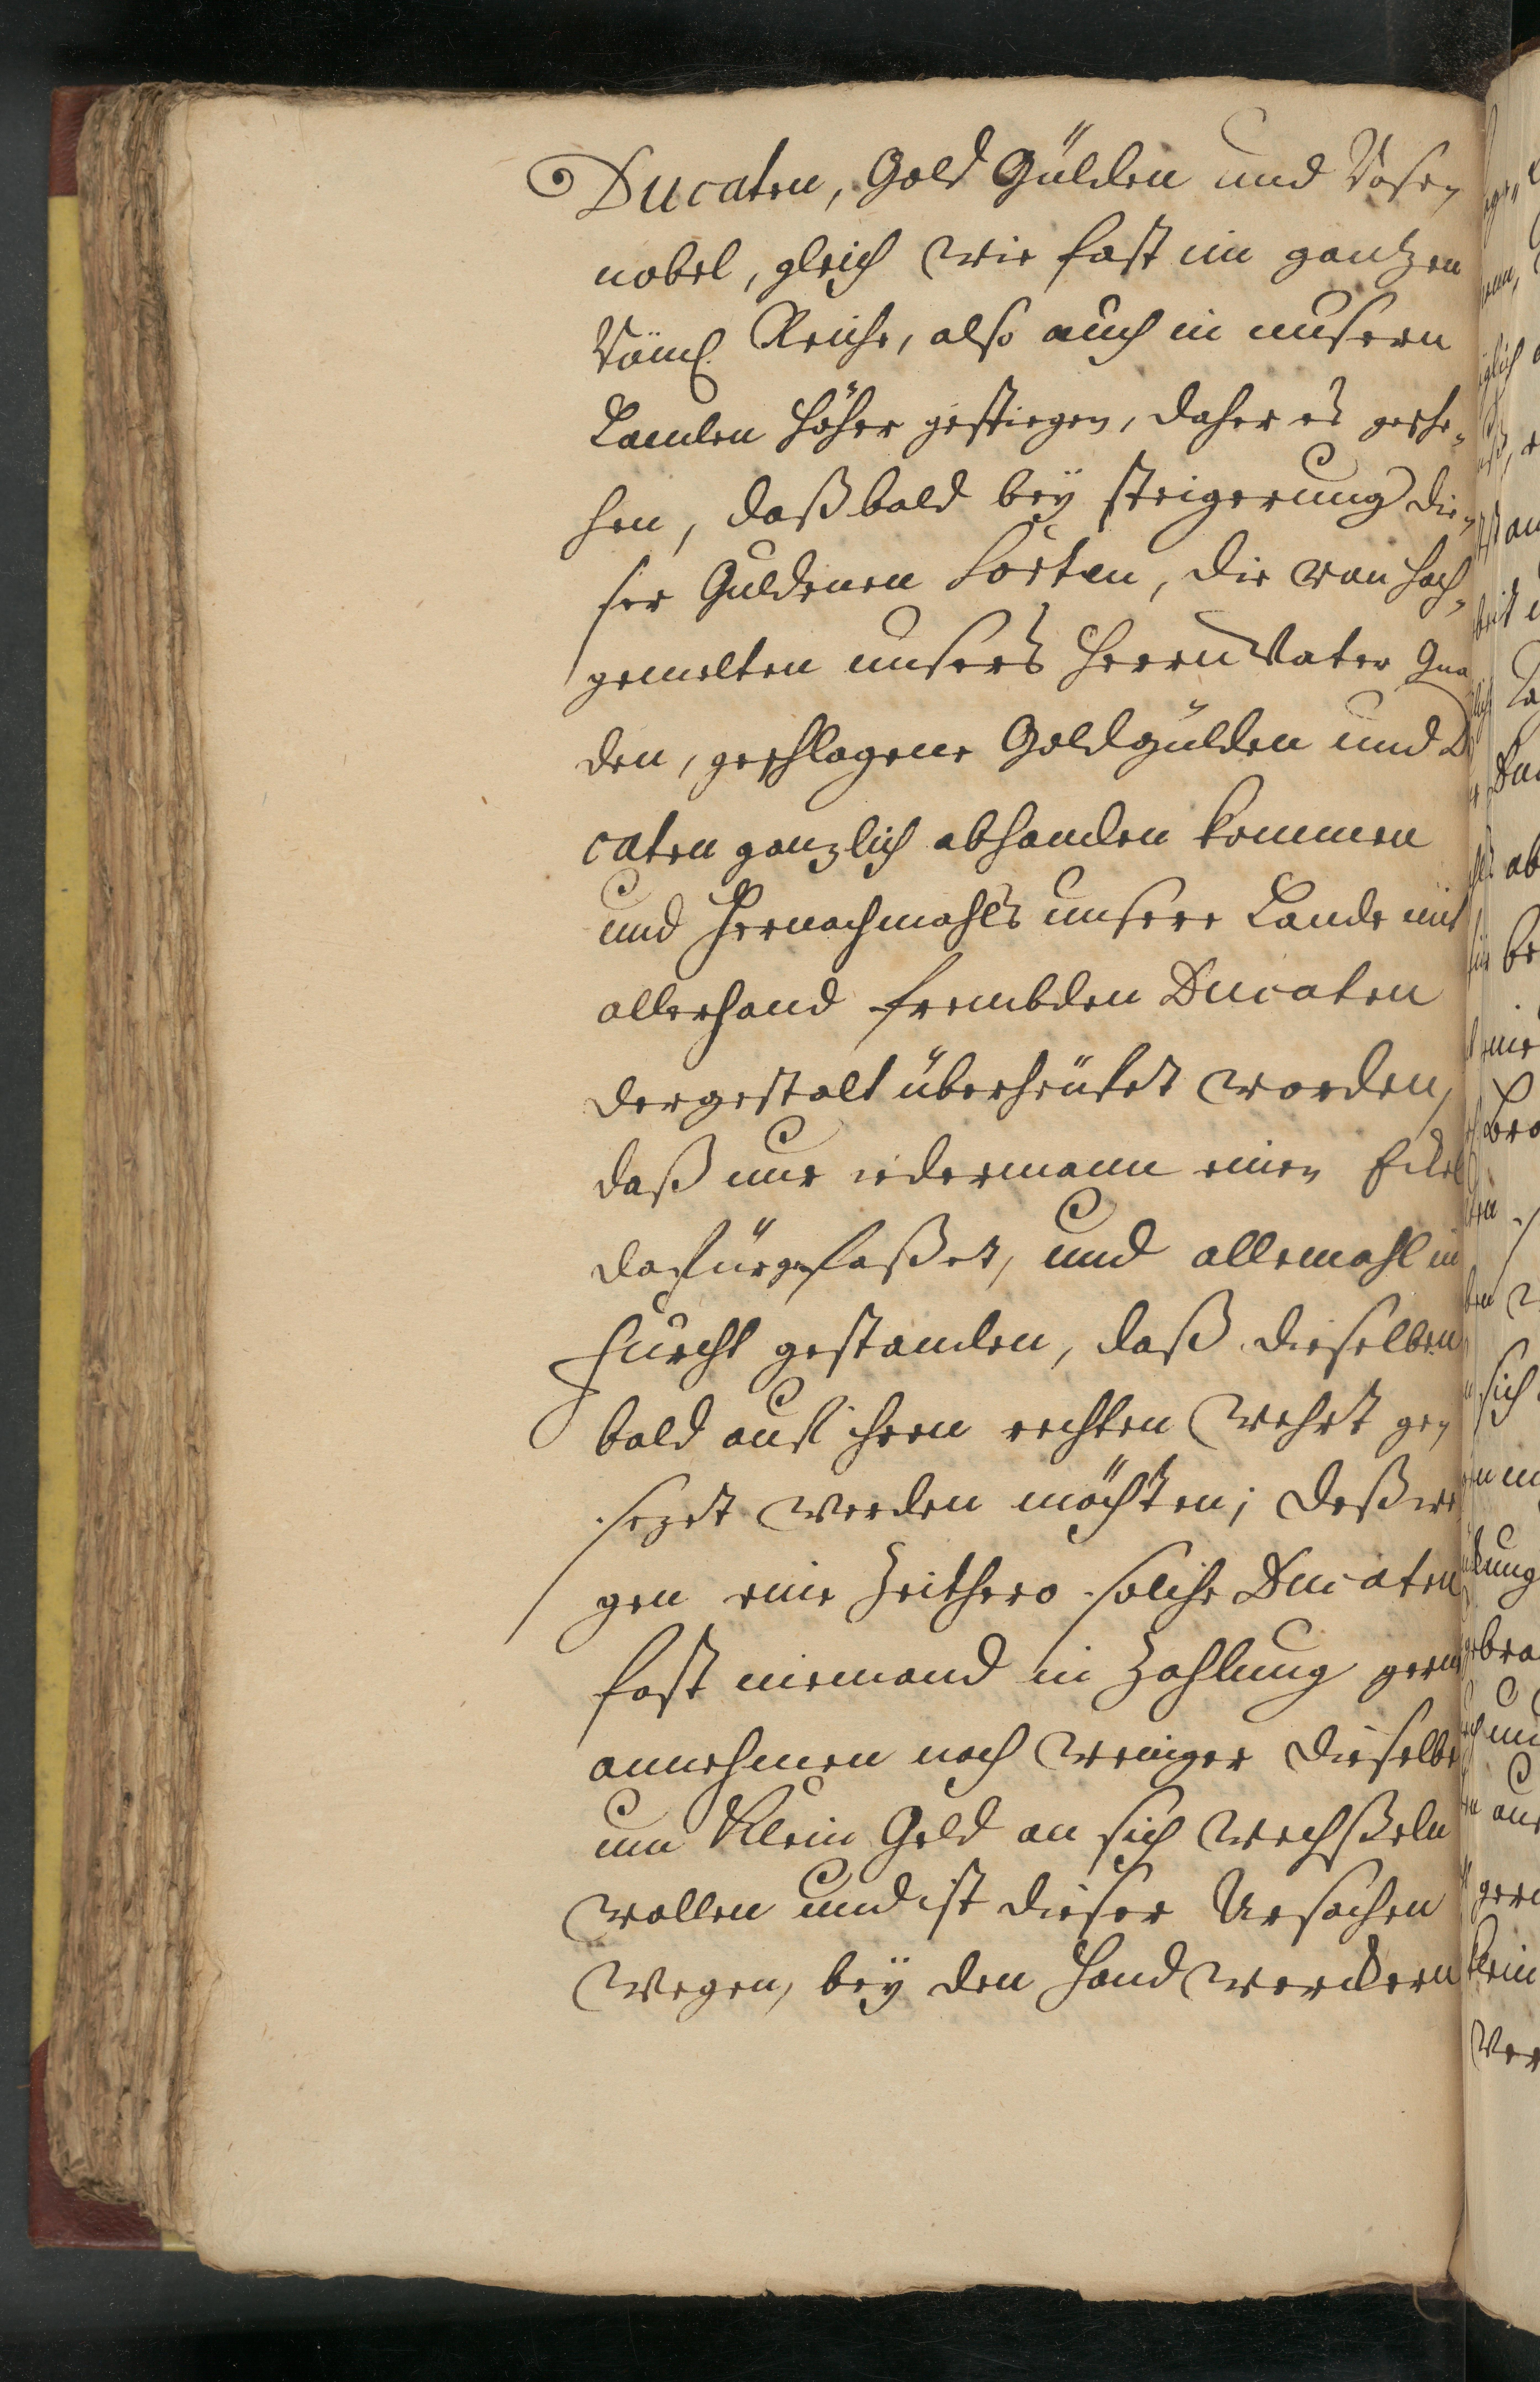 Ducaten, Gold Gülden und Rose-
nobel, gleich wie fast im gantzen
Röml. Reiche, also auch in unsern
Landen höher gestiegen, daher es gesche-
hen, daß bald bey steigerung die-
ser Guldenen Sorten, die von hoch-
gemelten unsers Herrn Vater Gna
den, geschlagene Goldgülden und D
caten ganzlich abhanden kommen
und hernachmahls unsere Lande mit
allerhand frembden Ducaten
dergestalt überheufet worden,
daß nur iedermann einen Eckel
dafür gefaßet, und allemahl in
Furcht gestanden, daß dieselben
bald auß ihren rechten Wehrt ge-
sezet werden möchten; deßwe
gen eine Zeithero solche Ducaten
fast niemand in Zahlung gern
annehmen noch weniger dieselbe
um Klein Geld an sich wechßeln
wollen und ist dieser Ursachen
wegen, bey den Handwerckern